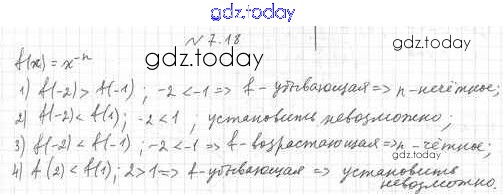 gdz.today
№ 7.18
f(x) = x⁻ⁿ
gdz.today
gdz.today
1) f(-2) > f(-1) ; -2 < -1 => f - убывающая => n - нечётное;
2) f(-2) < f(1) ; -2 < 1 ; установить невозможно;
3) f(-2) < f(-1) ; -2 < -1 => f - возрастающая => n - чётное;
gdz.today
4) f(2) < f(1); 2 > 1 => f - убывающая => установить
невозможно
gdz.today